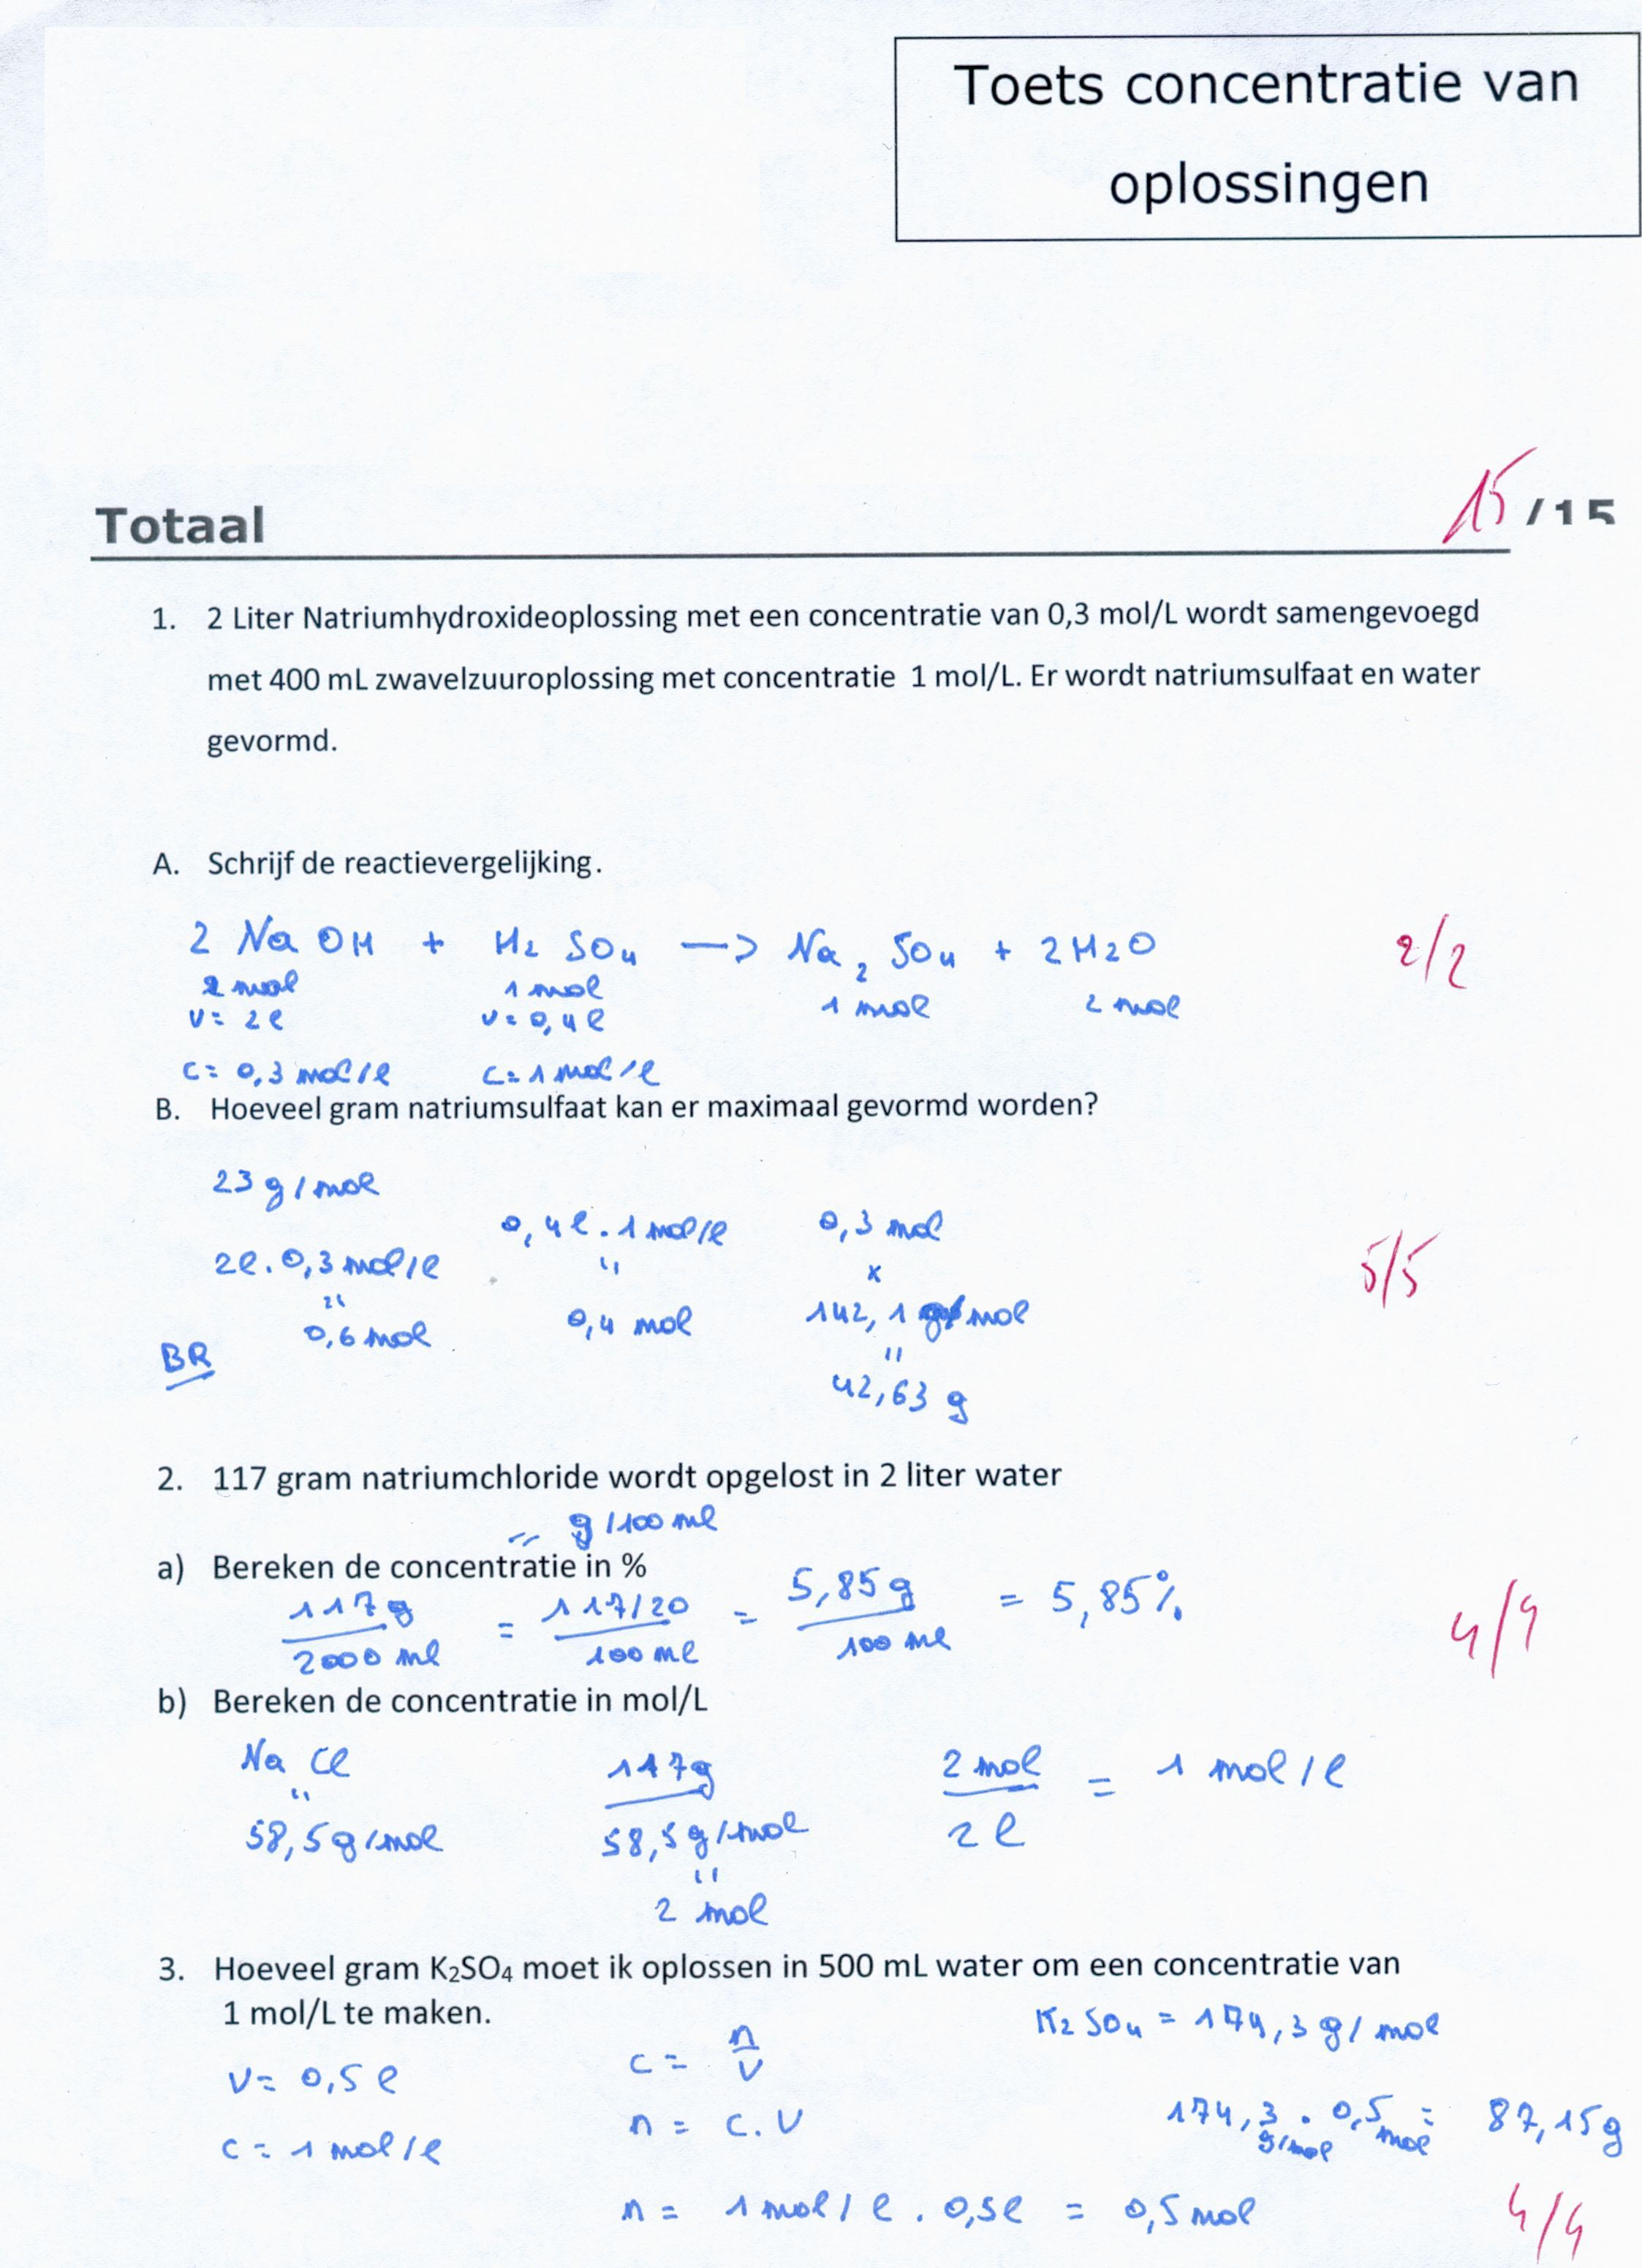 Toets concentratie van
oplossingen
Totaal 15 /15
1. 2 Liter Natriumhydroxideoplossing met een concentratie van 0,3 mol/L wordt samengevoegd
met 400 mL zwavelzuuroplossing met concentratie 1 mol/L. Er wordt natriumsulfaat en water
gevormd.
A. Schrijf de reactievergelijking.
2 Na OH + H2 SO4 —> Na2 SO4 + 2 H2O 2/2
2 mol 1 mol 1 mol 2 mol
V= 2l V= 0,4 l
C= 0,3 mol/l C= 1 mol/l
B. Hoeveel gram natriumsulfaat kan er maximaal gevormd worden?
23 g/mol
0,4 l . 1 mol/l 0,3 mol
2l . 0,3 mol/l " x 5/5
" 0,4 mol 142,1 g/mol
0,6 mol "
BR 42,63 g
2. 117 gram natriumchloride wordt opgelost in 2 liter water
= g/100 ml
a) Bereken de concentratie in %
117 g / 2000 ml = 117/20 / 100 ml = 5,85 g / 100 ml = 5,85% 4/4
b) Bereken de concentratie in mol/L
Na Cl 117g 2 mol = 1 mol/l
" 58,5 g/mol 2 l
58,5 g/mol "
2 mol
3. Hoeveel gram K₂SO₄ moet ik oplossen in 500 mL water om een concentratie van
1 mol/L te maken.
K2 SO4 = 174,3 g/mol
V= 0,5 l C = n/V
174,3 g/mol . 0,5 mol = 87,15 g
C= 1 mol/l n = C.V
n = 1 mol/l . 0,5l = 0,5 mol 4/4